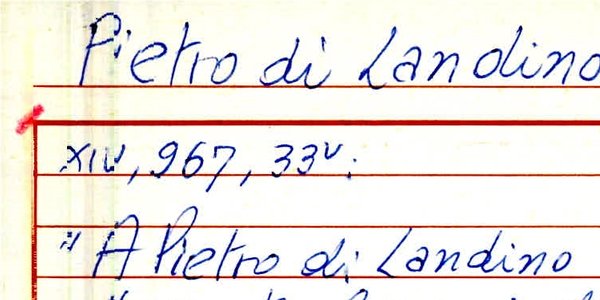 Pietro di Landino
XIV, 967, 33v:
"A Pietro di Landino